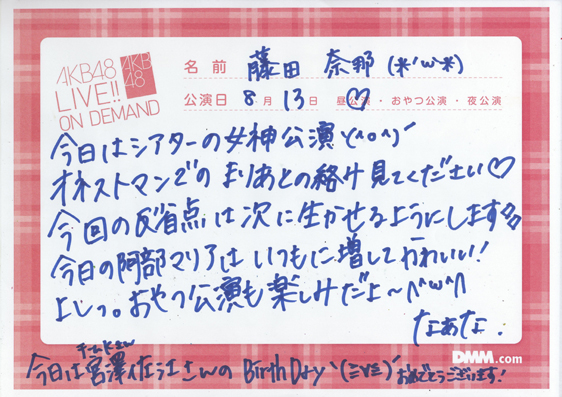 AKB48
LIVE!!
ON DEMAND
AKB
48
名前 藤田 奈那 (*'ω'*)
公演日 8月 13日 昼公演・おやつ公演・夜公演
今日はシアターの女神公演ヾ(^o^)ﾉ
オネストマンでの まりあとの絡み見てください♡
今回の反省点は次に生かせるようにします
今日の阿部マリアは いつもに増してかわいい!
よしっ。おやつ公演も楽しみだよ〜 ^ω^
なぁな.
チームKさん
今日は宮澤佐江さんの BirthDay ヽ(=v=)ﾉ おめでとうございます!
DMM.com